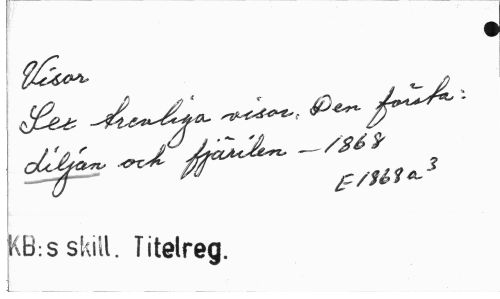 Visor
Sex trenliga visor. Den första:
diljan och fjärilen - 1868
E 1868 a 3
KB:s skill. Titelreg.